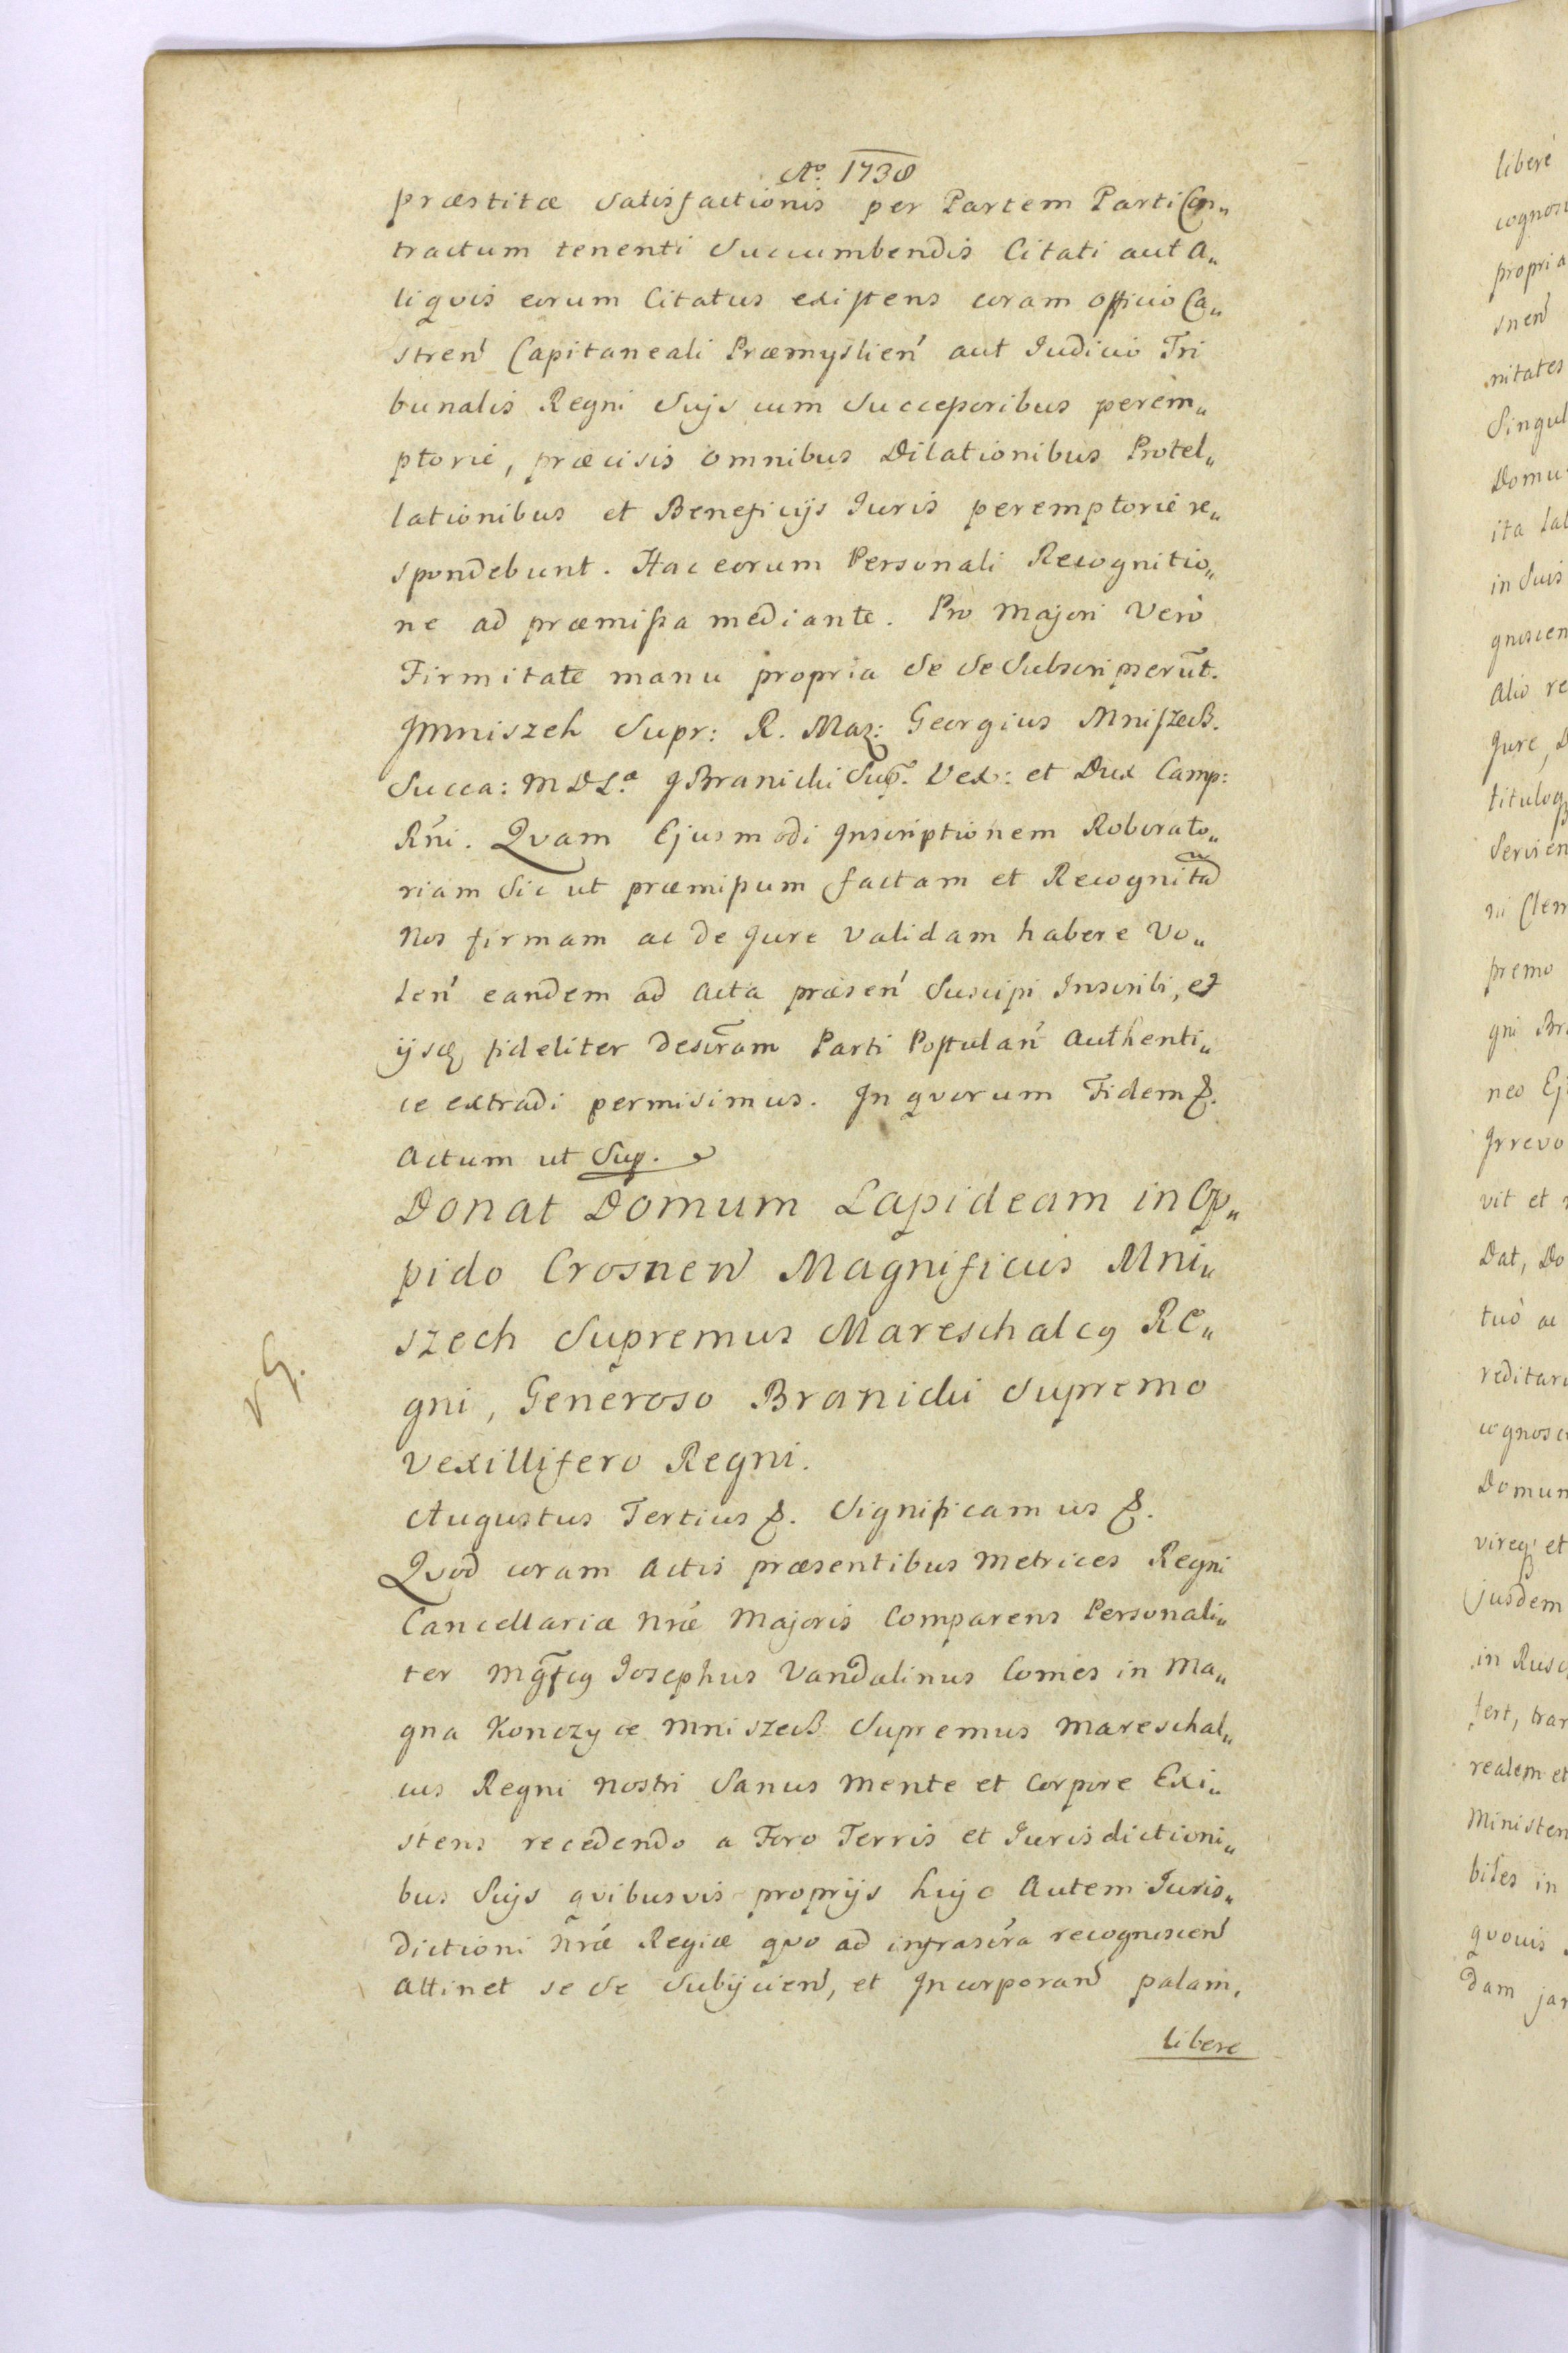 Aº. 1738
præstitæ Satisfactionis per Partem Parti Con„
tractum tenenti Succumbendis Citati aut A„
liqvis eorum Citatus existens coram Officio Ca„
stren̄ Capitaneali Præmyslien̄ aut Iudicio Tri
bunalis Regni Suis cum Successoribus perem„
ptorie, præcisis omnibus Dilationibus Protel„
lationibus et Beneficijs Iuris peremptorie re„
spondebunt. Hac eorum Personali Recognitio„
ne ad præmissa mediante. Pro Majori Vero
Firmitate manu propria Se Se Subscripserūt.
JMniszeh Supr: R. Mar: Georgius Mniszech.
Succa: M D L.ª J Branicki Sup̄. Vex: et Dux Camp:
Rńi. Qvam Ejusmodi Inscriptionem Roborato„
riam Sic ut præmissum factam et Recognitā
Nos firmam ac de Jure Validam habere Vo„
len̄ eandem ad Acta præsen̄ Suscipi Inscribi, et
ijsq fideliter Descr̄am Parti Postulan̄ Authenti„
ce extradi permisimus. In qvorum Fidem &.
Actum ut Sup.
Donat Domum Lapideam in Op„
pido Crosnen̄ Magnificus Mni„
szech Supremus Mareschalcꝯ Re„
gni, Generoso Branicki Supremo
Vexillifero Regni.
Augustus Tertius &. Significamus &.
Qvod coram Actis præsentibus Metrices Regni
Cancellariæ Nræ Majoris Comparens Personali„
ter Mḡfcꝯ Iosephus Vandalinus Comes in Ma„
gna Konczyce Mniszech Supremus Mareschal„
cus Regni Nostri Sanus Mente et Corpore Exi„
stens recedendo a Foro Terris et Iurisdictioni„
bus Suis qvibusvis proprijs hujc Autem Iuris„
dictioni Nræ Regiæ qvo ad infrascr̄a recognoscen̄
Attinet se Se Subijcien̄, et Incorporan̄ palam,
libere
libere
propria
snen̄
nitates
Domu
in Suis
Alio re
Jure, D
Servien
premo
gni Br
neo Ej
Irrevo
vit et
Dat, Do
tuo ac
reditari
Domum
jusdem
realem et
Minister
biles in
qvovis
dam jar